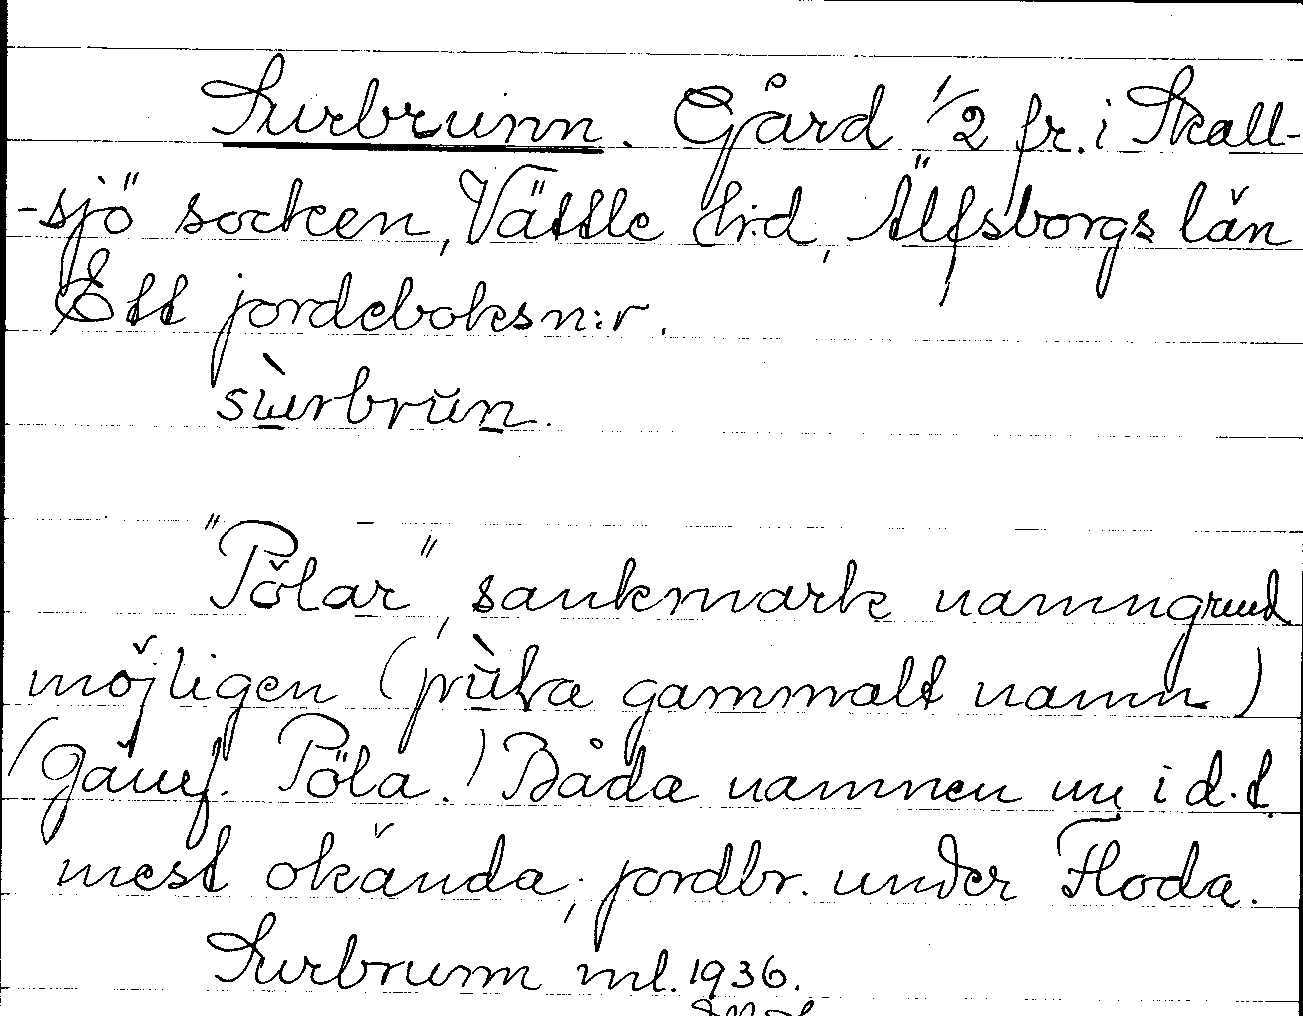 Surbrunn. Gård 1/2 fr. i Skall-
-sjö socken, Vättle h:d, Älfsborgs län
Ett jordeboksn:r.
sùrbrun.
"Pölar", sankmark namngrund
möjligen (pùla gammalt namn)
(Jämf. Pöla.) Båda namnen nu i d.t.
mest okända; jordbr. under Floda.
Surbrunn ml. 1936.